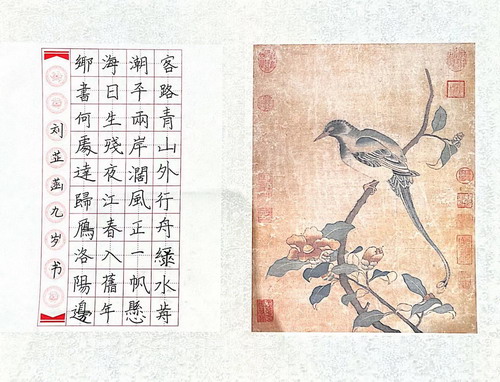 客路青山外行舟綠水前
潮平兩岸濶風正一帆懸
海日生殘夜江春入舊年
鄉書何處達歸鴈洛陽邊
刘芷菡九岁书